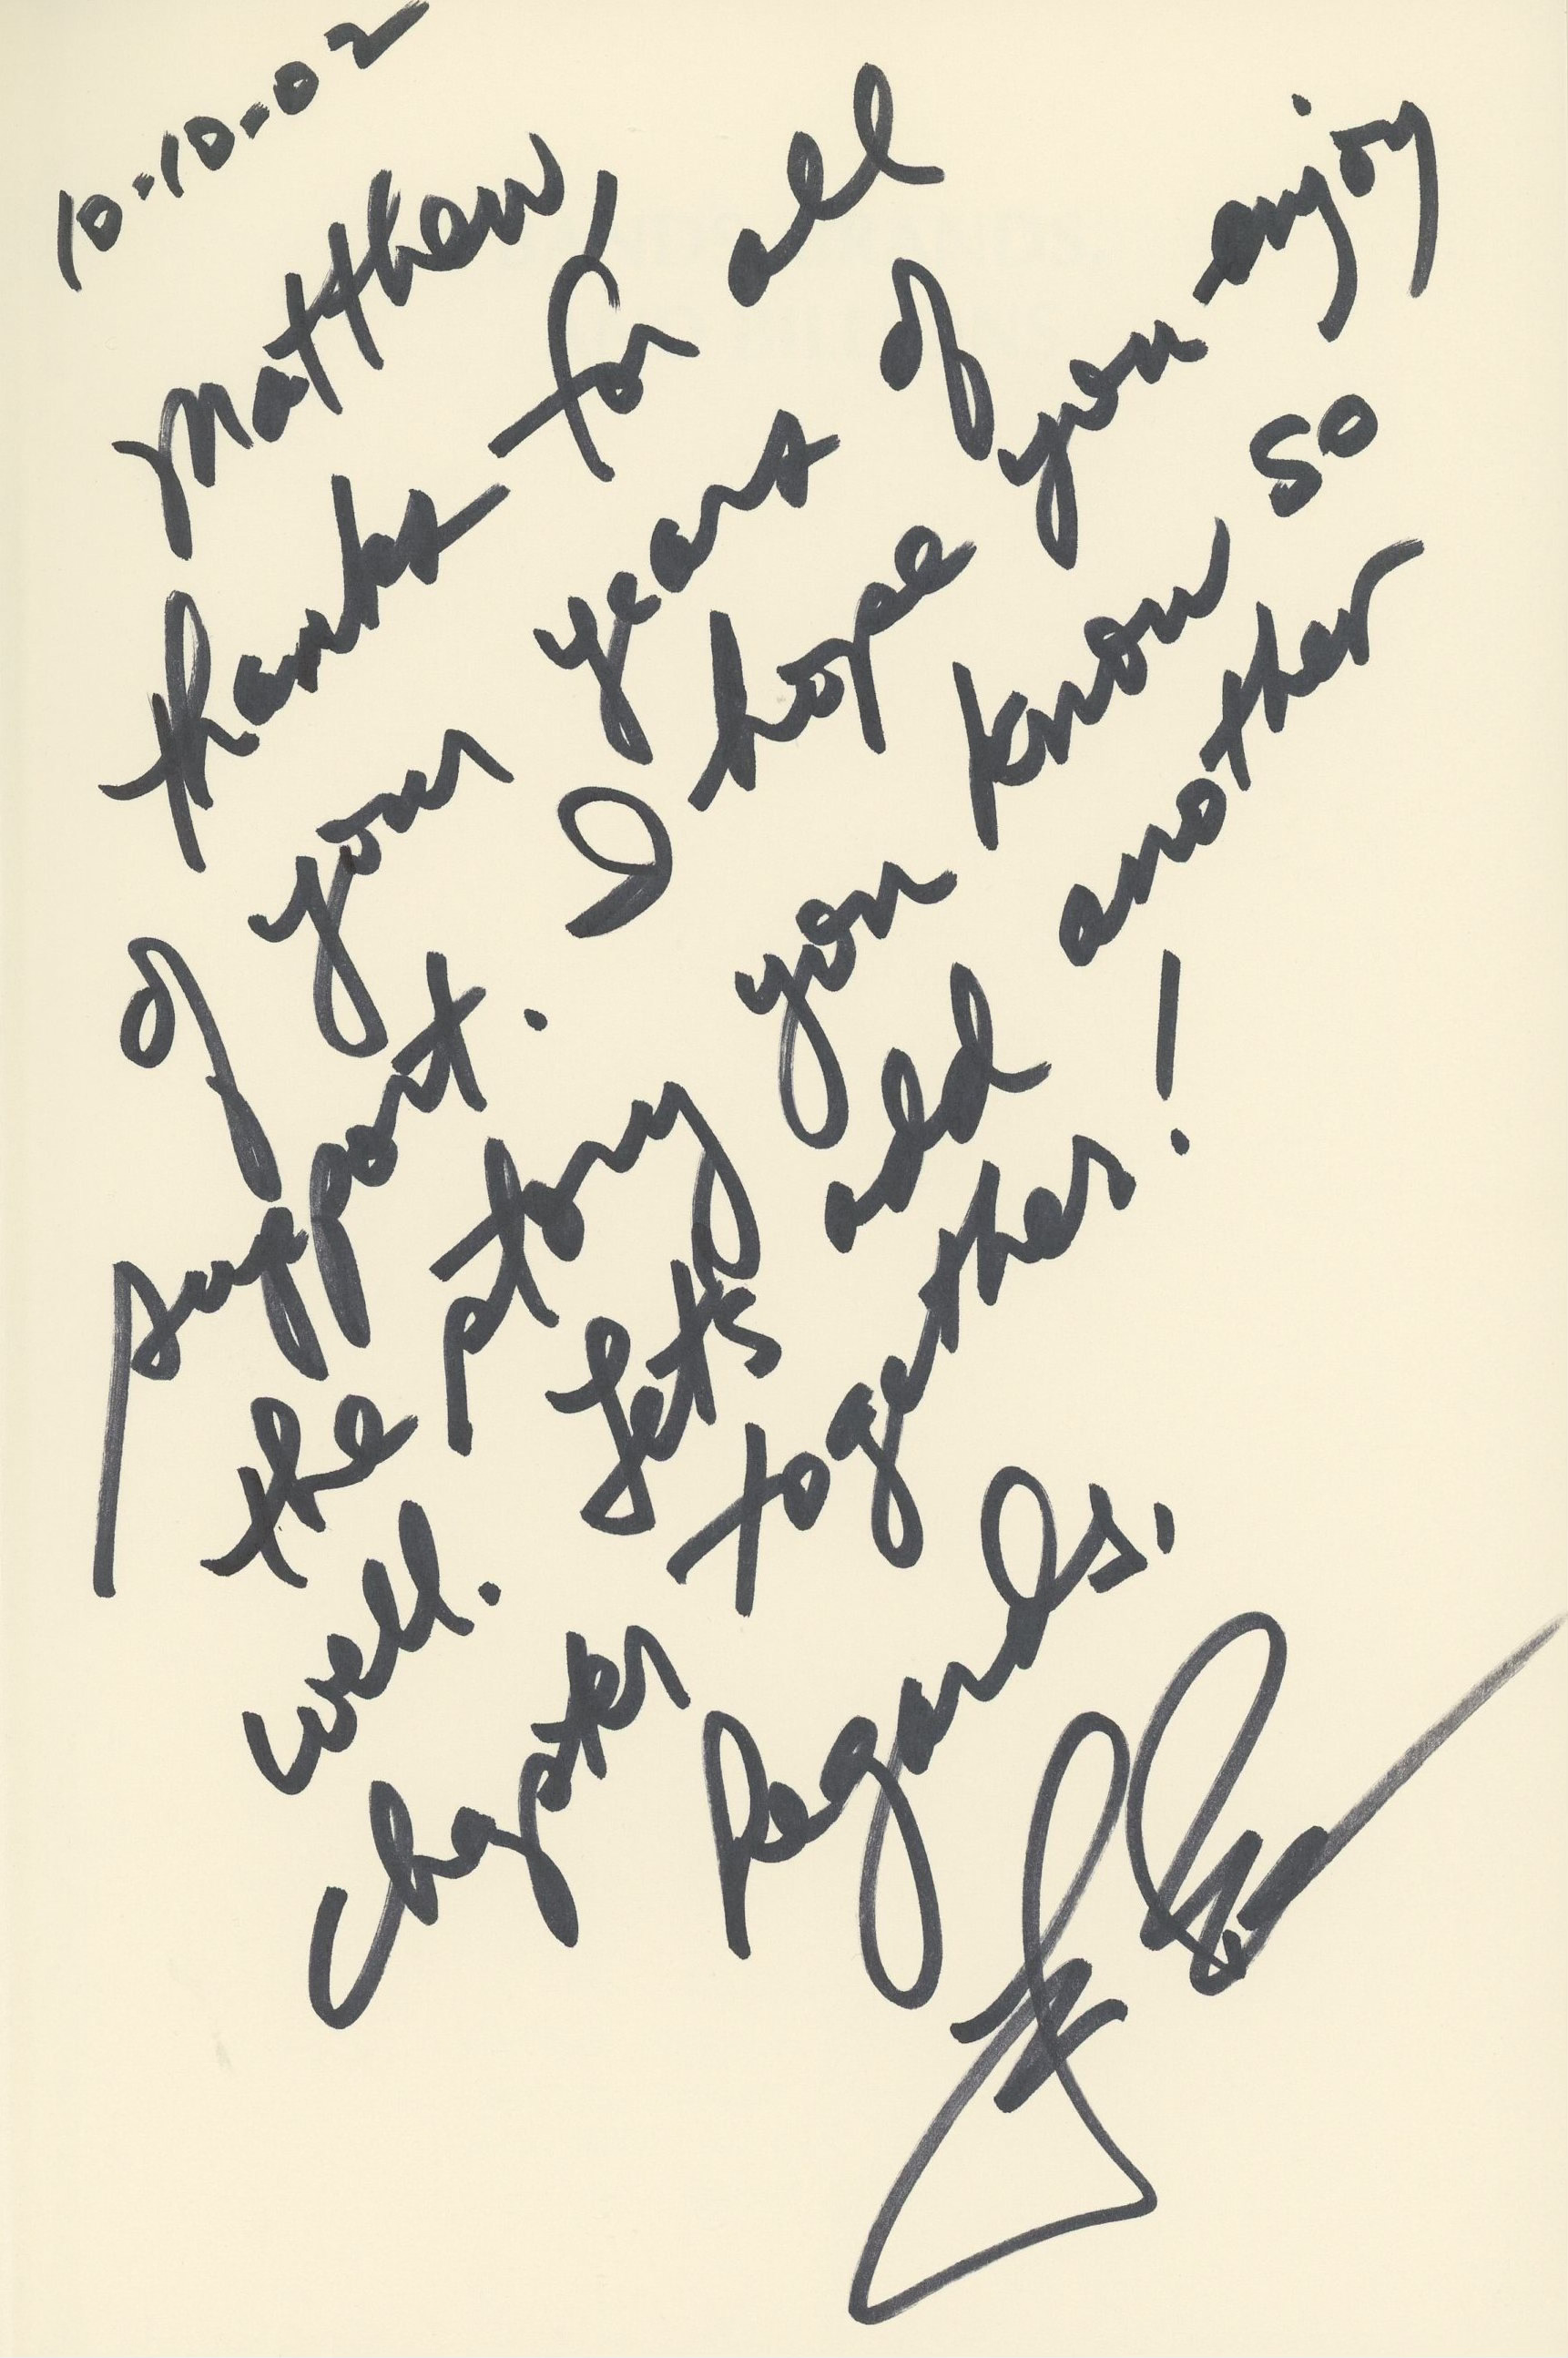 10-10-02
Matthew,
thanks for all
of your years of
support. I hope you enjoy
the story you know so
well. Let's add another
chapter together!
Regards,